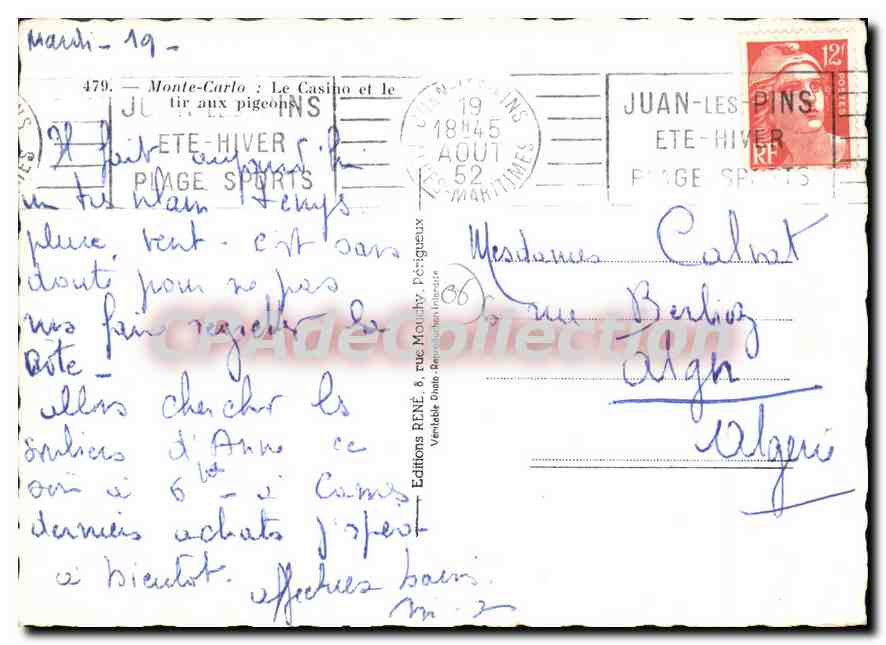 Mardi - 19 -
479. — Monte-Carlo : Le Casino et le
tir aux pigeons
JUAN-LES-PINS
ETE-HIVER
PLAGE SPORTS
JUAN-LES-PINS
19
18H45
AOUT
52
ALPES-MARITIMES
JUAN-LES-PINS
ETE-HIVER
PLAGE SPORTS
12F
POSTES
RF
Il fait aujourd'hui
un très vilain temps
pluie, vent - c'est sans
doute pour ne pas
nous faire regretter la
côte -
allons chercher les
souliers d'Anne ce
soir à 6h - à Cannes
derniers achats j'espère
à bientôt. affectueux baisers.
Editions RENÉ, 8, rue Mouchy, Périgueux
Véritable Photo - Reproduction Interdite
06
Mesdames Calvat
6 rue Berlioz
Alger
Algérie
CPAdeCollection